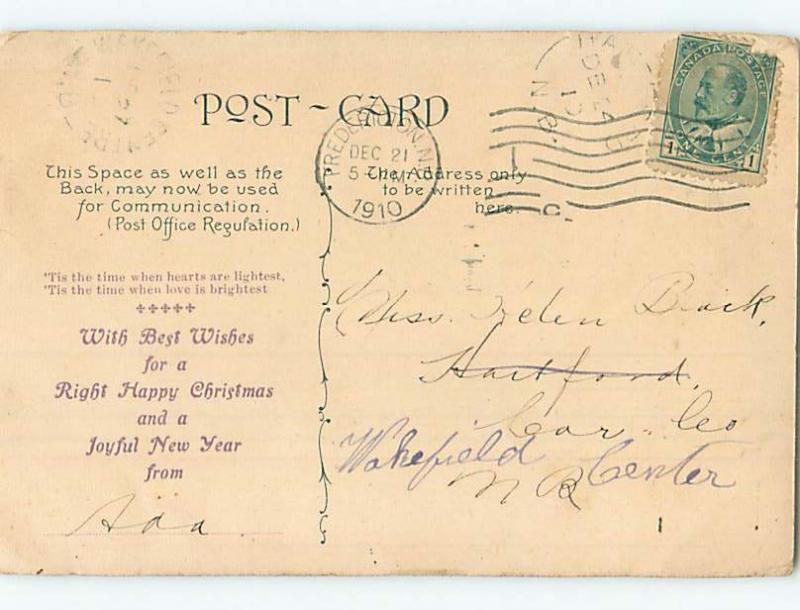 POST-CARD
CANADA POSTAGE
ONE CENT
1 1
FREDERICTON, N.
DEC 21
5 M
1910
DE 24
10
N.B.
WAKEFIELD CENTRE
This Space as well as the
Back, may now be used
for Communication.
(Post Office Regulation.)
The Address only
to be written
here.
'Tis the time when hearts are lightest,
'Tis the time when love is brightest
With Best Wishes
for a
Right Happy Christmas
and a
Joyful New Year
from
Ada
Miss. Helen
Hartford,
Car. Co
Wakefield Center
N B